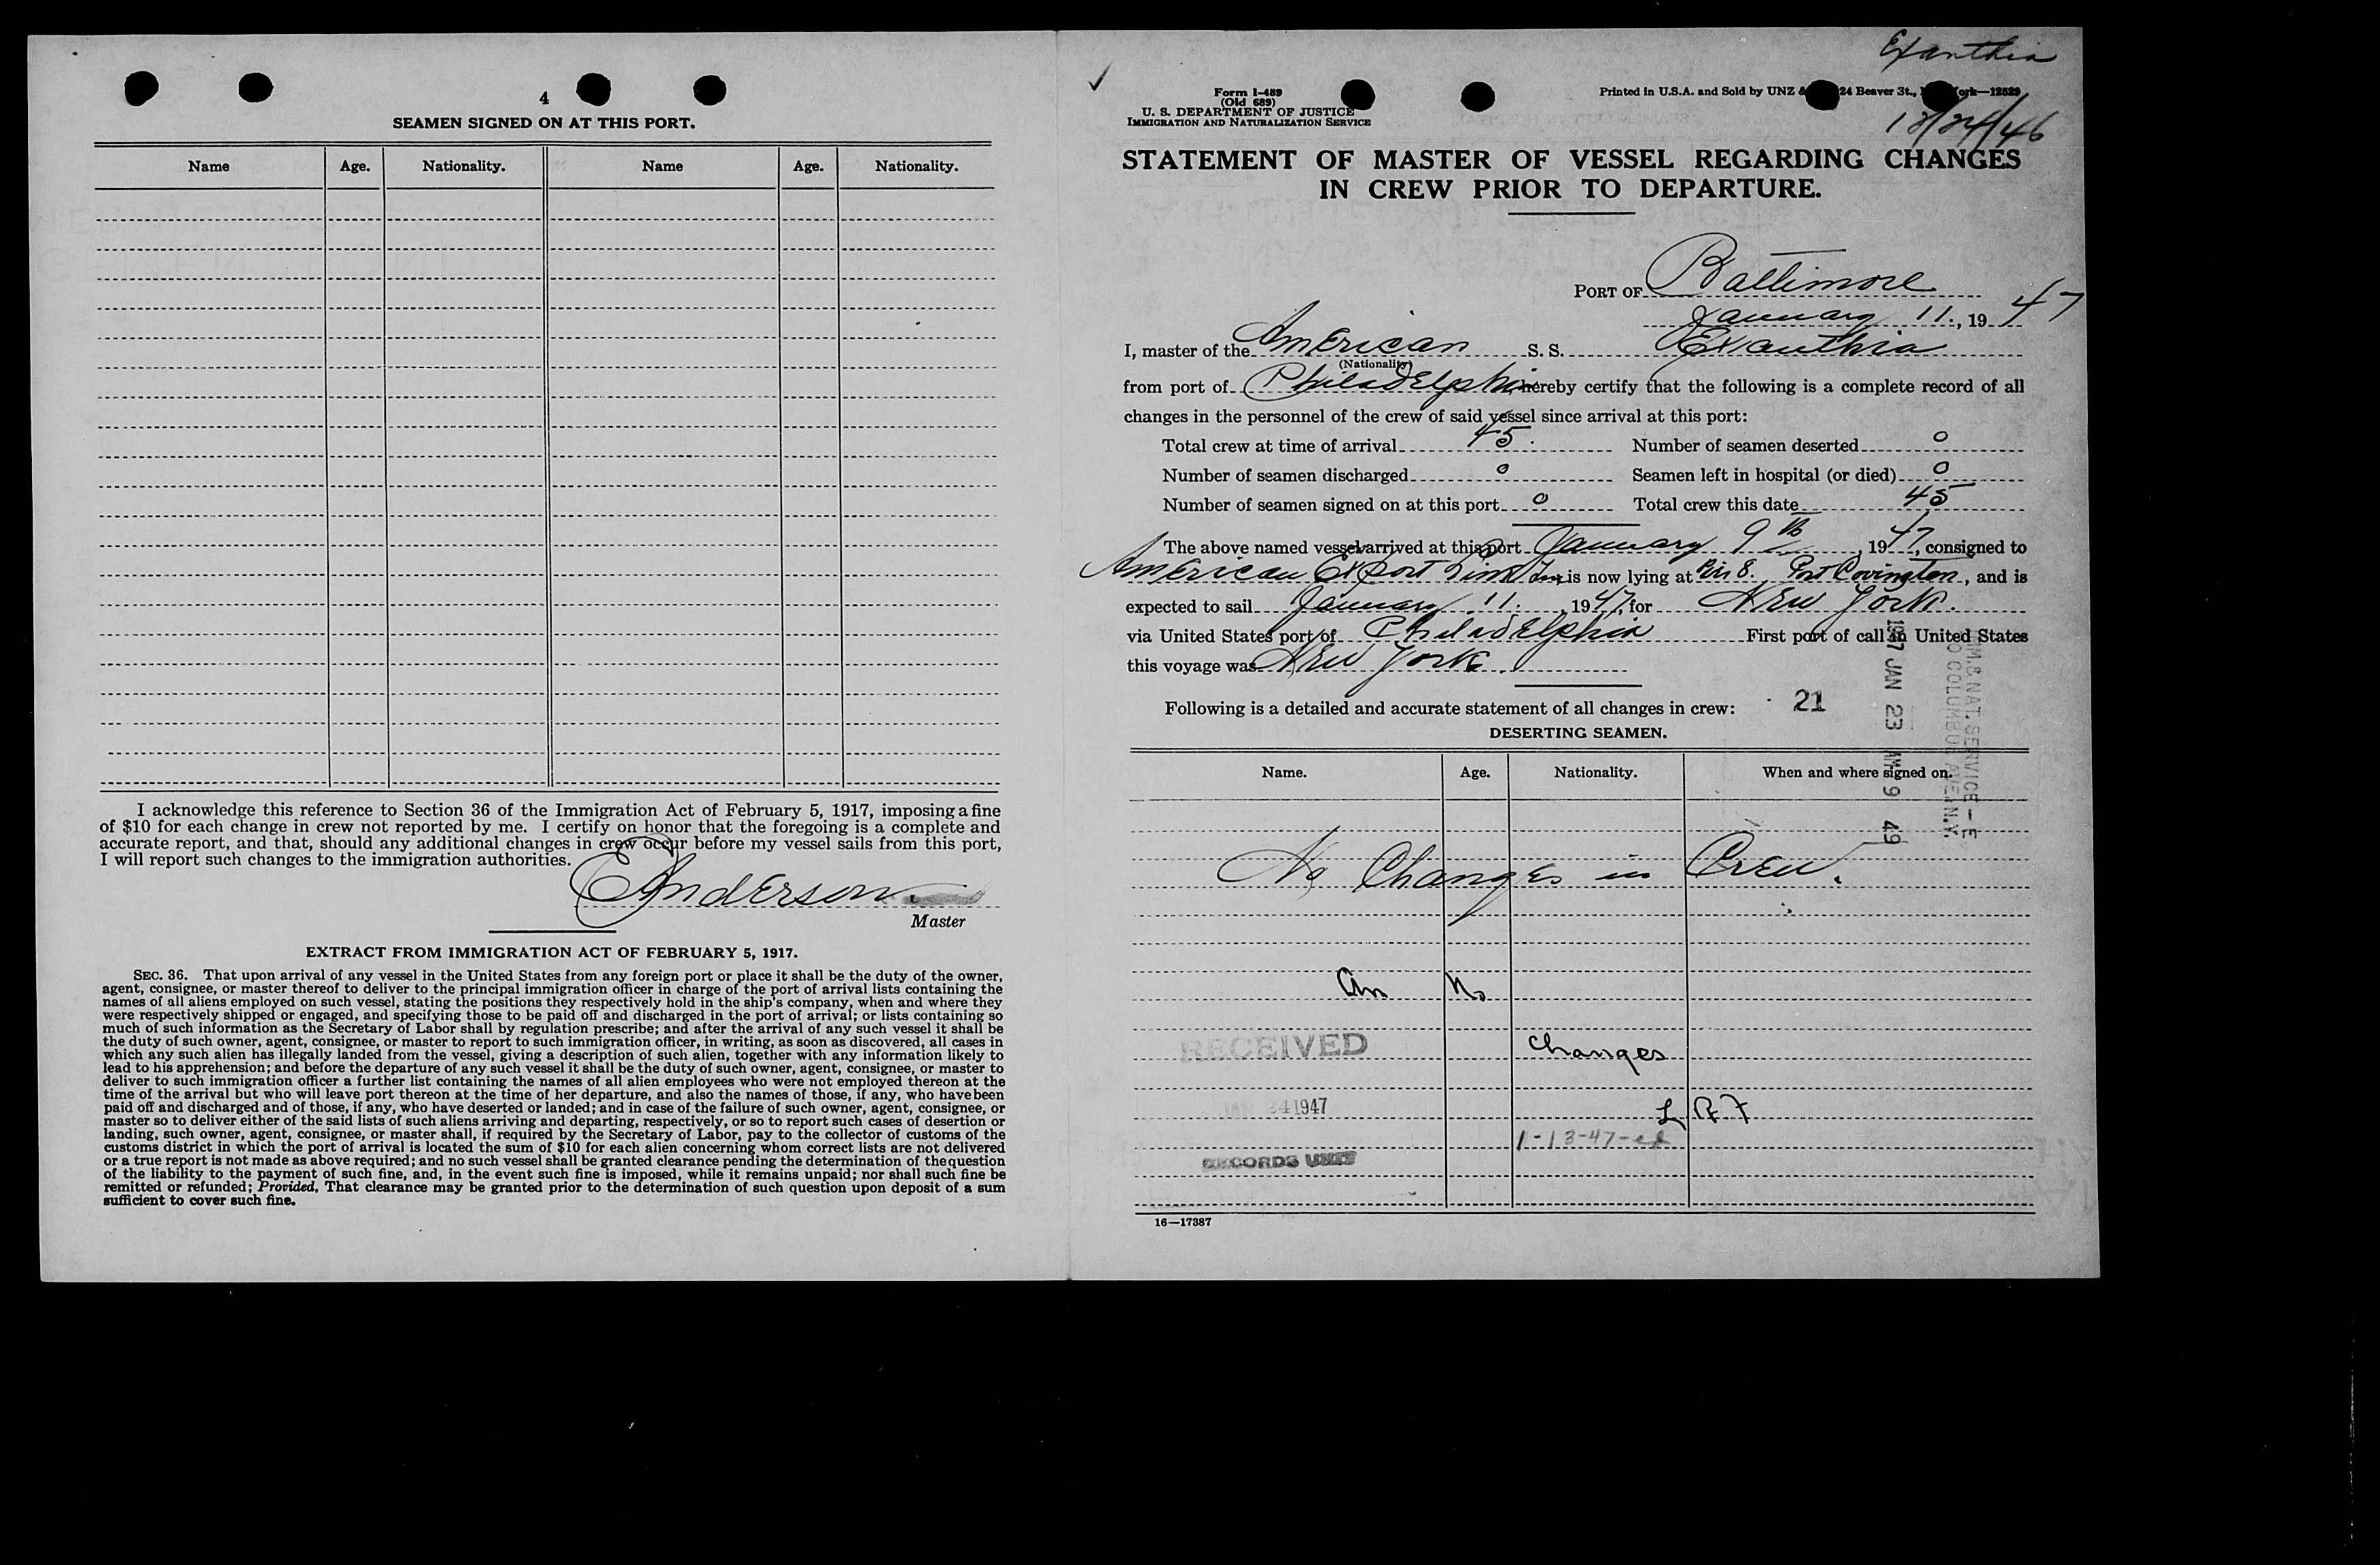 4
SEAMEN SIGNED ON AT THIS PORT.
Name Age. Nationality. Name Age. Nationality.
I acknowledge this reference to Section 36 of the Immigration Act of February 5, 1917, imposing a fine
of $10 for each change in crew not reported by me. I certify on honor that the foregoing is a complete and
accurate report, and that, should any additional changes in crew occur before my vessel sails from this port,
I will report such changes to the immigration authorities.
Anderson
Master
EXTRACT FROM IMMIGRATION ACT OF FEBRUARY 5, 1917.
SEC. 36. That upon arrival of any vessel in the United States from any foreign port or place it shall be the duty of the owner,
agent, consignee, or master thereof to deliver to the principal immigration officer in charge of the port of arrival lists containing the
names of all aliens employed on such vessel, stating the positions they respectively hold in the ship's company, when and where they
were respectively shipped or engaged, and specifying those to be paid off and discharged in the port of arrival; or lists containing so
much of such information as the Secretary of Labor shall by regulation prescribe; and after the arrival of any such vessel it shall be
the duty of such owner, agent, consignee, or master to report to such immigration officer, in writing, as soon as discovered, all cases in
which any such alien has illegally landed from the vessel, giving a description of such alien, together with any information likely to
lead to his apprehension; and before the departure of any such vessel it shall be the duty of such owner, agent, consignee, or master to
deliver to such immigration officer a further list containing the names of all alien employees who were not employed thereon at the
time of the arrival but who will leave port thereon at the time of her departure, and also the names of those, if any, who have been
paid off and discharged and of those, if any, who have deserted or landed; and in case of the failure of such owner, agent, consignee, or
master so to deliver either of the said lists of such aliens arriving and departing, respectively, or so to report such cases of desertion or
landing, such owner, agent, consignee, or master shall, if required by the Secretary of Labor, pay to the collector of customs of the
customs district in which the port of arrival is located the sum of $10 for each alien concerning whom correct lists are not delivered
or a true report is not made as above required; and no such vessel shall be granted clearance pending the determination of the question
of the liability to the payment of such fine, and, in the event such fine is imposed, while it remains unpaid; nor shall such fine be
remitted or refunded; Provided, That clearance may be granted prior to the determination of such question upon deposit of a sum
sufficient to cover such fine.
Exanthia
12/24/46
Form I-489
(Old 689)
U. S. DEPARTMENT OF JUSTICE
IMMIGRATION AND NATURALIZATION SERVICE
Printed in U.S.A. and Sold by UNZ & 24 Beaver St., ork—12529
STATEMENT OF MASTER OF VESSEL REGARDING CHANGES
IN CREW PRIOR TO DEPARTURE.
PORT OF Baltimore
January 11, 1947
I, master of the American S. S. Exanthia
(Nationality)
from port of Philadelphia hereby certify that the following is a complete record of all
changes in the personnel of the crew of said vessel since arrival at this port:
Total crew at time of arrival 45. Number of seamen deserted 0
Number of seamen discharged 0 Seamen left in hospital (or died) 0
Number of seamen signed on at this port 0 Total crew this date 45
The above named vessel arrived at this port January 9th, 1947, consigned to
American Export Lines Inc is now lying at Pier 8. Port Covington, and is
expected to sail January 11., 1947, for New York.
via United States port of Philadelphia First port of call in United States
this voyage was New York.
Following is a detailed and accurate statement of all changes in crew: 21
DESERTING SEAMEN.
1947 JAN 23 AM 9 49
IMM. & NAT. SERVICE - E
70 COLUMBUS AVE. N.Y.
Name. Age. Nationality. When and where signed on.
No Changes in Crew.
An No
changes
RECEIVED
JAN 24 1947
L R F
1-13-47-
RECORDS UNIT
16—17387